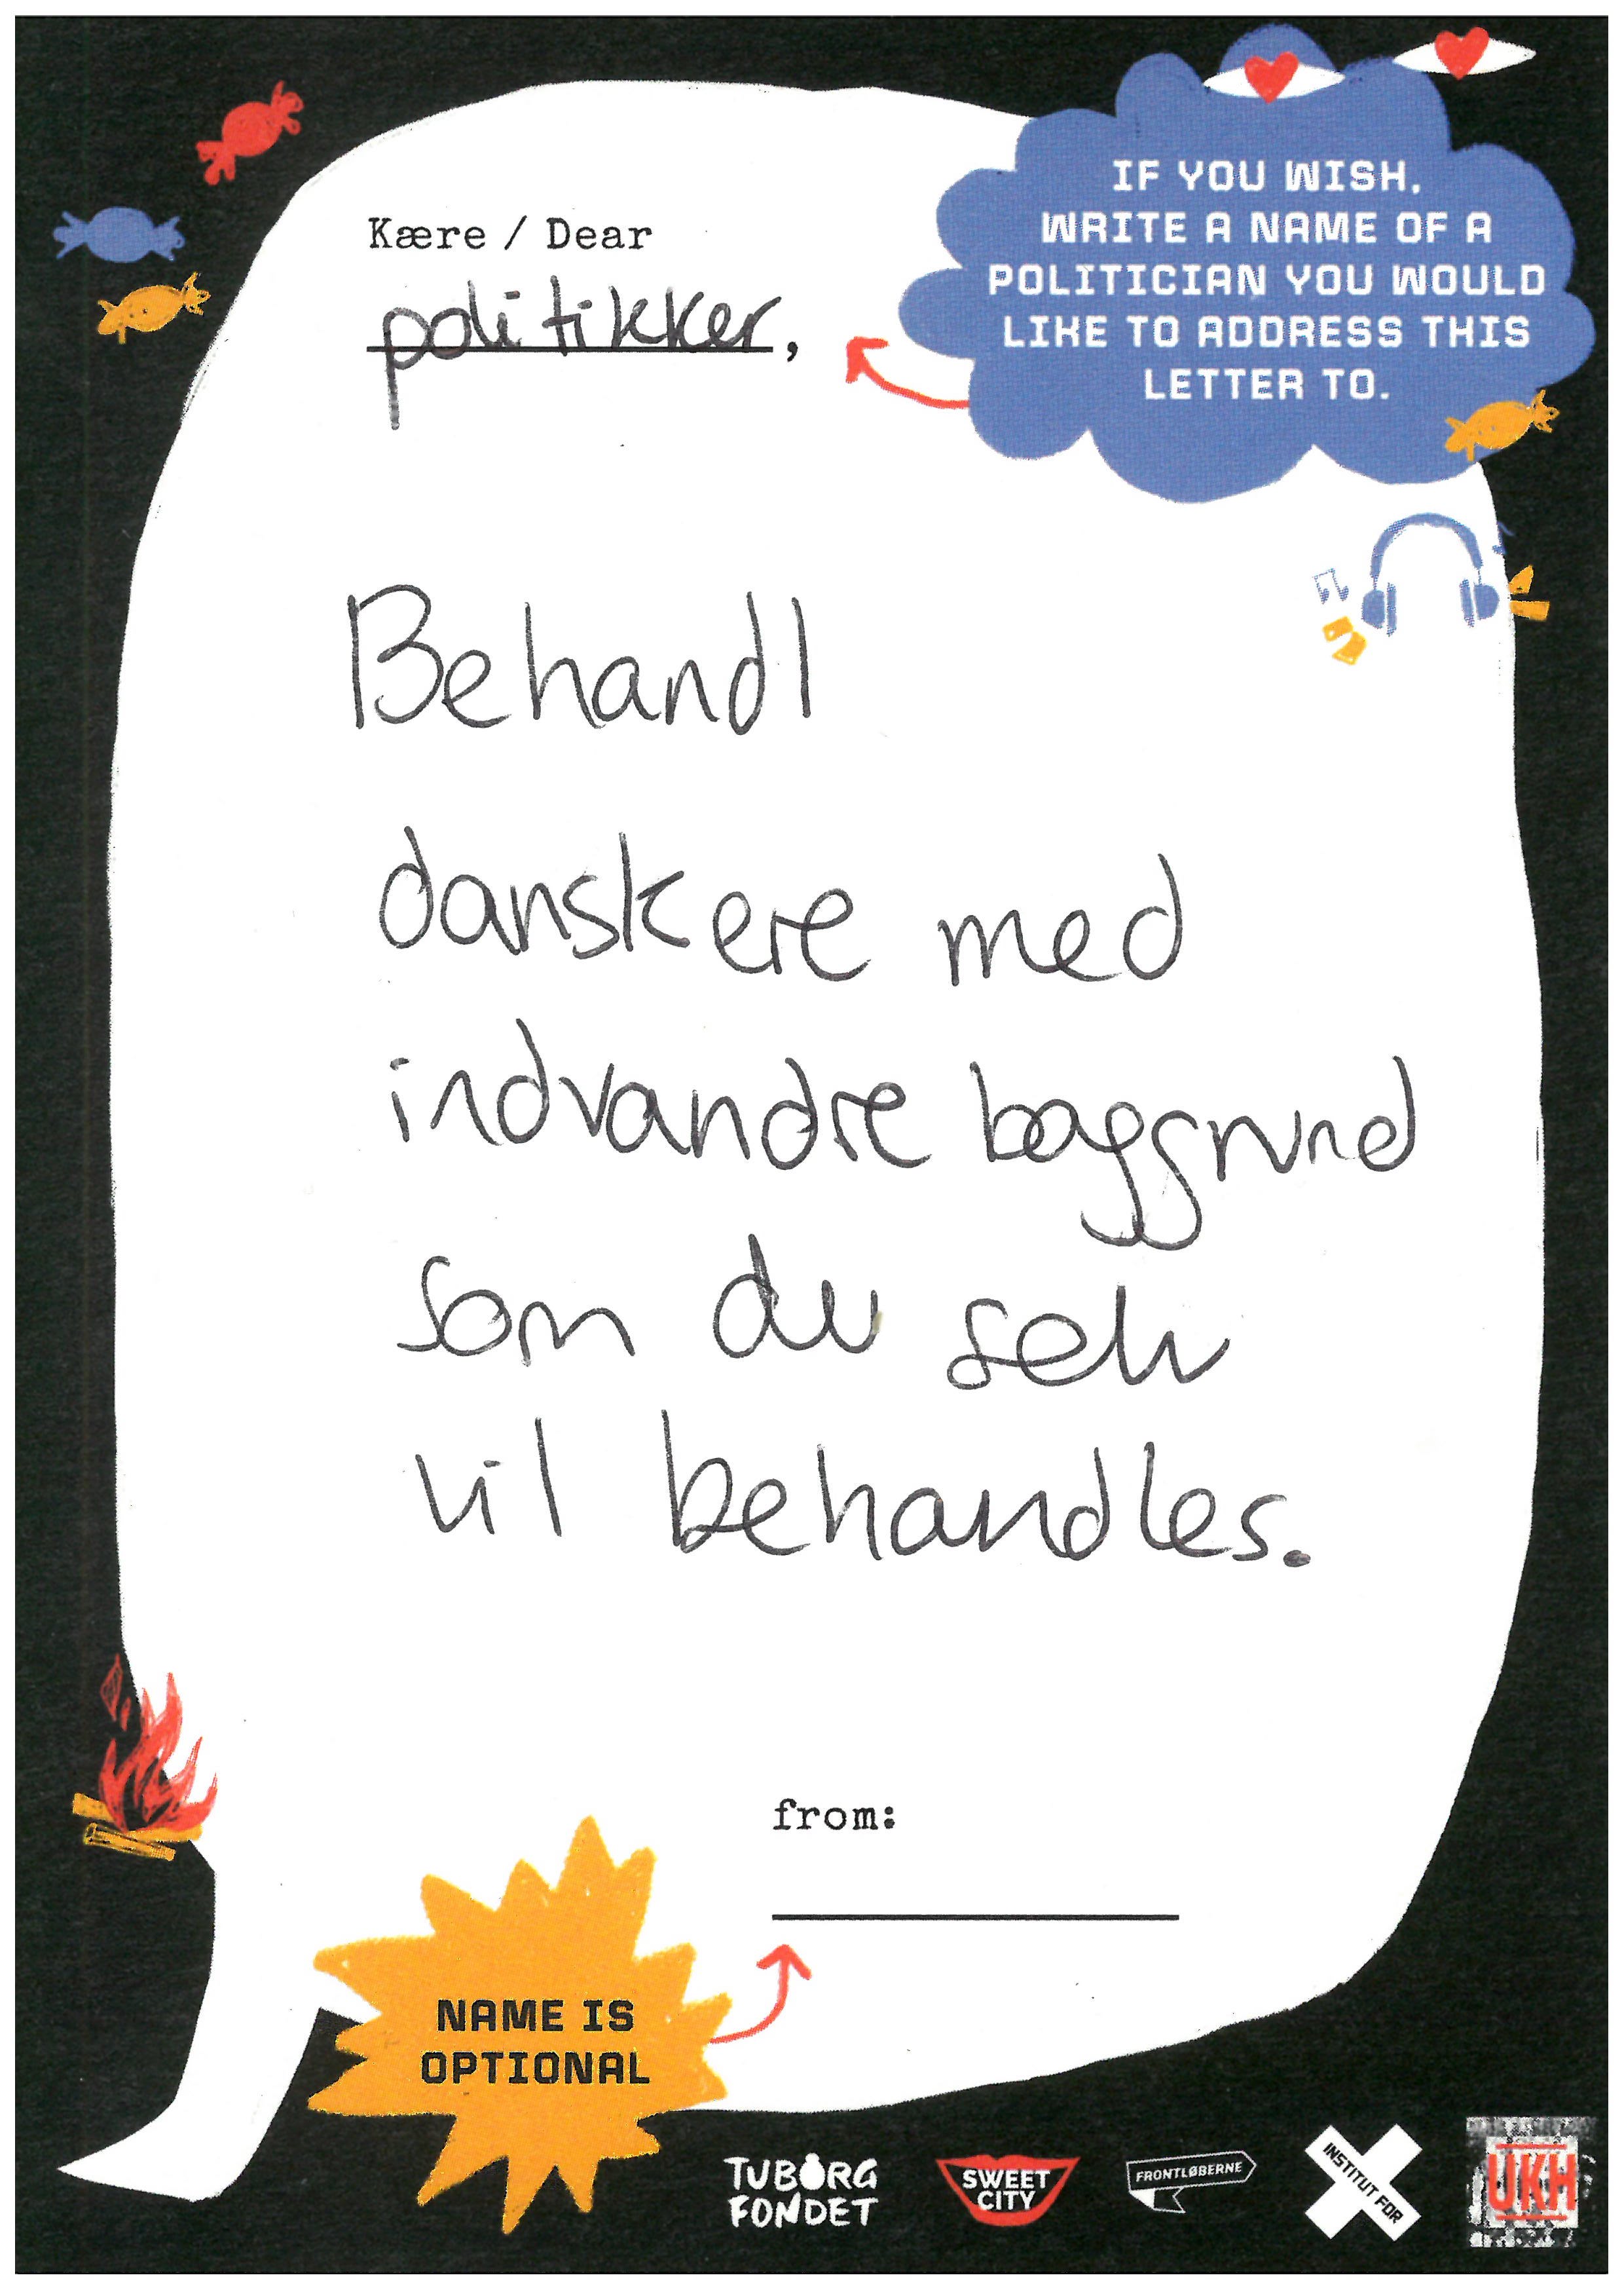 Kære / Dear
politikker,
IF YOU WISH,
WRITE A NAME OF A
POLITICIAN YOU WOULD
LIKE TO ADDRESS THIS
LETTER TO.
Behandl
danskere med
indvandre baggrund
som du selv
vil behandles.
from:
NAME IS
OPTIONAL
TUBORG
FONDET
SWEET
CITY
FRONTLØBERNE
INSTITUT FOR
UKH